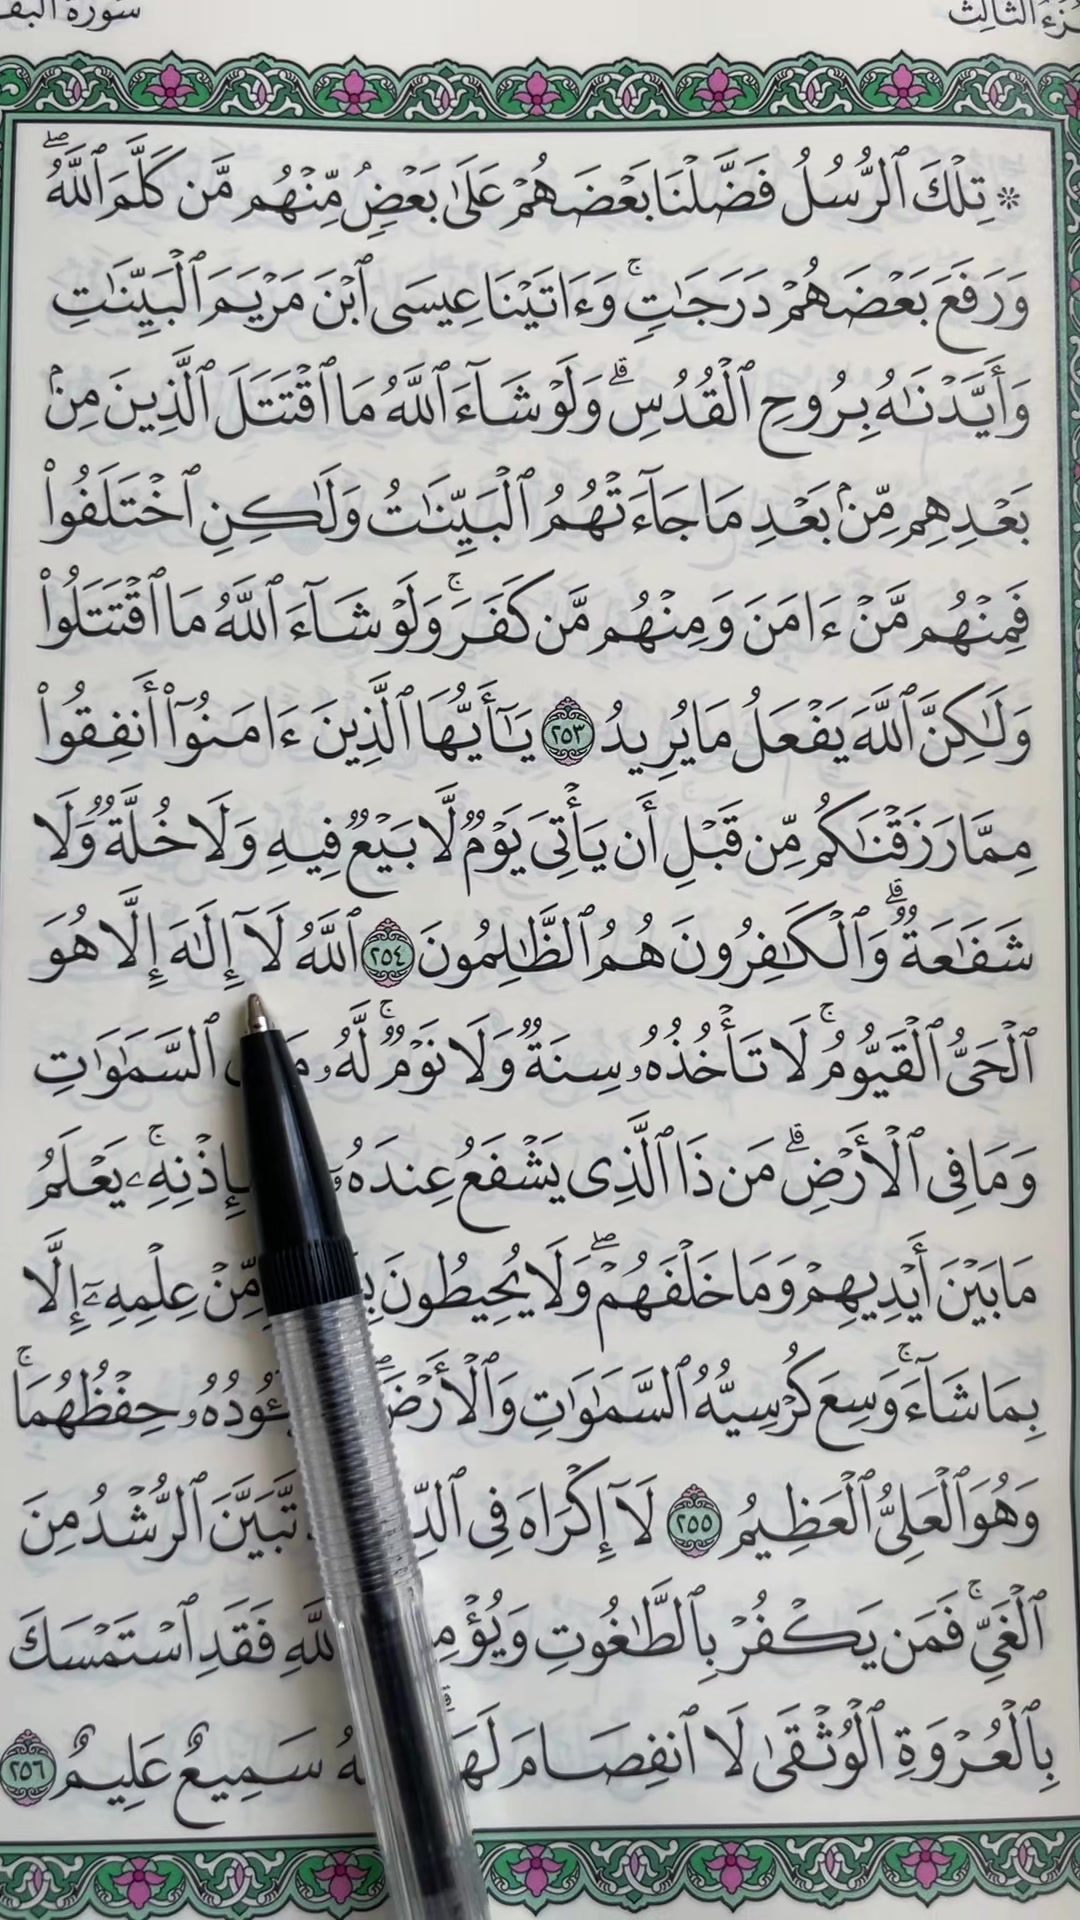 سورة البق
جزء الثالث
* تِلْكَ ٱلرُّسُلُ فَضَّلْنَا بَعْضَهُمْ عَلَىٰ بَعْضٍۘ مِّنْهُم مَّن كَلَّمَ ٱللَّهُۖ
وَرَفَعَ بَعْضَهُمْ دَرَجَٰتٍۚ وَءَاتَيْنَا عِيسَى ٱبْنَ مَرْيَمَ ٱلْبَيِّنَٰتِ
وَأَيَّدْنَٰهُ بِرُوحِ ٱلْقُدُسِۗ وَلَوْ شَآءَ ٱللَّهُ مَا ٱقْتَتَلَ ٱلَّذِينَ مِنۢ
بَعْدِهِم مِّنۢ بَعْدِ مَا جَآءَتْهُمُ ٱلْبَيِّنَٰتُ وَلَٰكِنِ ٱخْتَلَفُوا۟
فَمِنْهُم مَّنْ ءَامَنَ وَمِنْهُم مَّن كَفَرَۚ وَلَوْ شَآءَ ٱللَّهُ مَا ٱقْتَتَلُوا۟
وَلَٰكِنَّ ٱللَّهَ يَفْعَلُ مَا يُرِيدُ ٢٥٣ يَٰٓأَيُّهَا ٱلَّذِينَ ءَامَنُوٓا۟ أَنفِقُوا۟
مِمَّا رَزَقْنَٰكُم مِّن قَبْلِ أَن يَأْتِىَ يَوْمٌ لَّا بَيْعٌ فِيهِ وَلَا خُلَّةٌ وَلَا
شَفَٰعَةٌۗ وَٱلْكَٰفِرُونَ هُمُ ٱلظَّٰلِمُونَ ٢٥٤ ٱللَّهُ لَآ إِلَٰهَ إِلَّا هُوَ
ٱلْحَىُّ ٱلْقَيُّومُۚ لَا تَأْخُذُهُۥ سِنَةٌ وَلَا نَوْمٌۚ لَّهُۥ ٱلسَّمَٰوَٰتِ
وَمَا فِى ٱلْأَرْضِۗ مَن ذَا ٱلَّذِى يَشْفَعُ عِندَهُۥٓ بِإِذْنِهِۦۚ يَعْلَمُ
مَا بَيْنَ أَيْدِيهِمْ وَمَا خَلْفَهُمْۖ وَلَا يُحِيطُونَ مِّنْ عِلْمِهِۦٓ إِلَّا
بِمَا شَآءَۚ وَسِعَ كُرْسِيُّهُ ٱلسَّمَٰوَٰتِ وَٱلْأَرْضَۖ حِفْظُهُمَاۚ
وَهُوَ ٱلْعَلِىُّ ٱلْعَظِيمُ ٢٥٥ لَآ إِكْرَاهَ فِى تَّبَيَّنَ ٱلرُّشْدُ مِنَ
ٱلْغَىِّۚ فَمَن يَكْفُرْ بِٱلطَّٰغُوتِ فَقَدِ ٱسْتَمْسَكَ
بِٱلْعُرْوَةِ ٱلْوُثْقَىٰ لَا ٱنفِصَامَ سَمِيعٌ عَلِيمٌ ٢٥٦